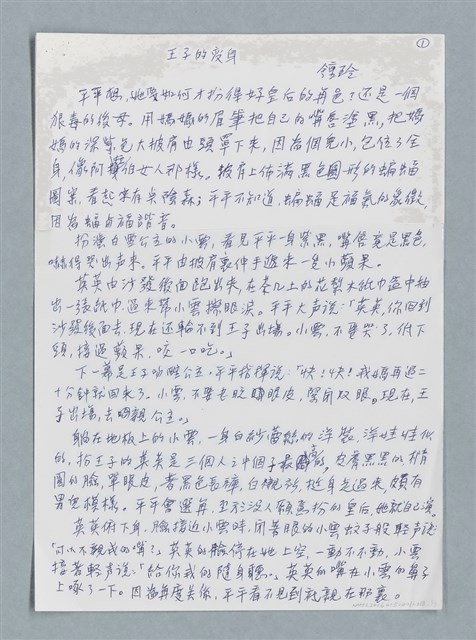 ①
王子的變身
鍾玲
平平想,她要如何才扮得好皇后的角色?還是一個
狠毒的後母。用媽媽的眉筆把自己的嘴唇塗黑,把媽
媽的深紫色大披肩由頭罩下來,因為個兒小,包住了全
身,像阿拉伯女人那樣。披肩上佈滿黑色圓形的蝙蝠
圖案,看起來有點陰森;平平不知道,蝙蝠是福氣的象徵,
因為蝠與福諧音。
扮演白雪公主的小雲,看見平平一身紫黑,嘴唇竟是黑色,
嚇得哭出声來。平平由披肩裏伸手遞來一隻小蘋果。
英英由沙發後面跑出來,在茶几上的花梨木紙巾盒中抽
出一張紙巾,過來幫小雲擦眼淚。平平大声說:「英英,你回到
沙發後面去,現在还輪不到王子出場。小雲,不要哭了,低下
頭,接過蘋果,咬一口吃。」
下一幕是王子吻醒公主,平平指揮說:「快!快!我媽再過二
十分鐘就回來了。小雲,不要去眨眼皮,緊閉双眼。現在,王
子出場,去吻親公主。」
躺在地板上的小雲,一身白紗蕾絲的洋裝,洋娃娃似
的,扮王子的英英是三個人之中個子最高的,皮膚黑黑的,橢
圓的臉,單眼皮,著黑色長褲,白襯衫,挺身走過來,頗有
男兒模樣。平平會選角,至於沒人願意扮的皇后,她就自己演。
英英俯下身,臉接近小雲時,閉著眼的小雲蚊子般輕声說:
「可以不親我的嘴?」英英的臉停在她上空,一動不動,小雲
接著輕声說:「給你我的隨身聽。」英英的嘴在小雲的鼻子
上啄了一下。因為角度关係,平平看不見到底親在那裏。